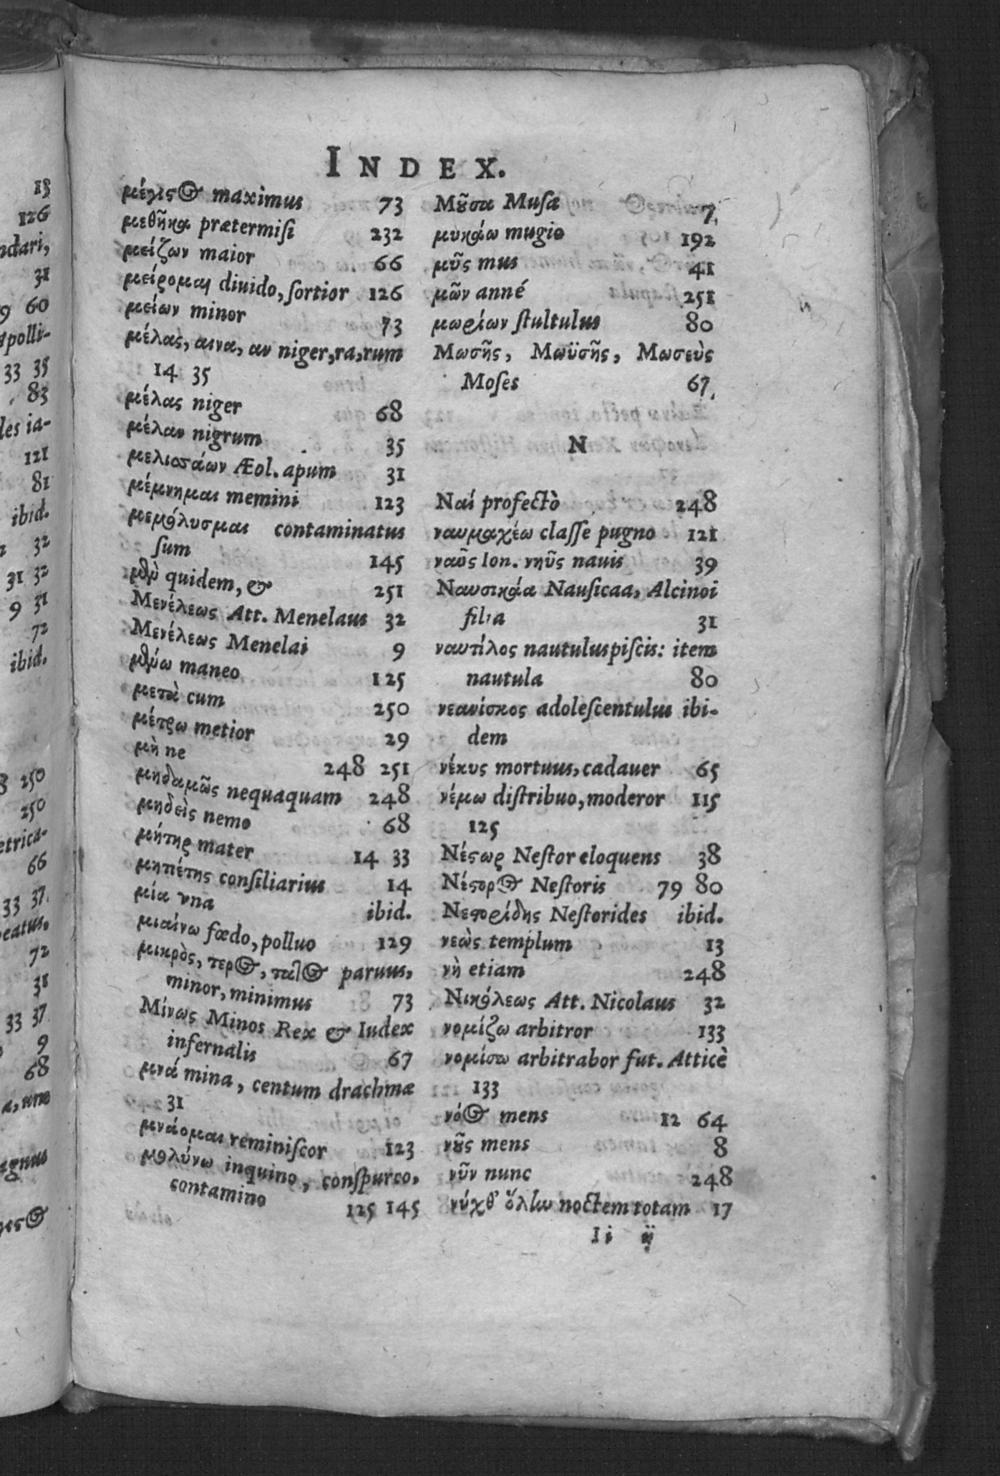 INDEX.
μέγιςος maximus 73
μεθῆκα prætermisi 232
μείζων maior 66
μείρομαι diuido, sortior 126
μείων minor 73
μέλας, αινα, αν niger,ra,rum
14 35
μέλας niger 68
μέλαν nigrum 35
μελισσάων Æol. apum 31
μέμνημαι memini 123
μεμόλυσμαι contaminatus
sum 145
μὲν quidem, & 251
Μενέλεως Att. Menelaus 32
Μενέλεως Menelai 9
μένω maneo 125
μετὰ cum 250
μέτρω metior 29
μὴ ne 248 251
μηδαμῶς nequaquam 248
μηδεὶς nemo 68
μήτηρ mater 14 33
μητιέτης consiliarius 14
μία vna ibid.
μιαίνω fœdo, polluo 129
μικρὸς, τερος, τατος paruus,
minor, minimus 73
Μίνως Minos Rex & Iudex
infernalis 67
μνᾶ mina, centum drachmæ
31
μνάομαι reminiscor 123
μολύνω inquino, conspurco,
contamino 125 145
Μοῦσα Musa 7
μυκάω mugio 192
μῦς mus 41
μῶν anné 251
μωρίων stultulus 80
Μωσῆς, Μωϋσῆς, Μωσεὺς
Moses 67
N
Ναί profectò 248
ναυμαχέω classe pugno 121
ναῦς Ion. νηῦς nauis 39
Ναυσικάα Nausicaa, Alcinoi
filia 31
ναυτίλος nautulus piscis: item
nautula 80
νεανίσκος adolescentulus ibi-
dem
νέκυς mortuus, cadauer 65
νέμω distribuo, moderor 115
125
Νέςωρ Nestor eloquens 38
Νέςορος Nestoris 79 80
Νεςορίδης Nestorides ibid.
νεὼς templum 13
νὴ etiam 248
Νικόλεως Att. Nicolaus 32
νομίζω arbitror 133
νομίσω arbitrabor fut. Atticè
133
νόος mens 12 64
νοῦς mens 8
νῦν nunc 248
νύχθ' ὅλην noctem totam 17
Ii ij
13
126
ndari,
31
9 60
spolli-
33 35
83
les ia-
121
81
ibid.
32
31 32
9 31
72
ibid.
250
250
etrica-
66
33 37
eatus.
72
31
33 37
9
68
a, une
agnus